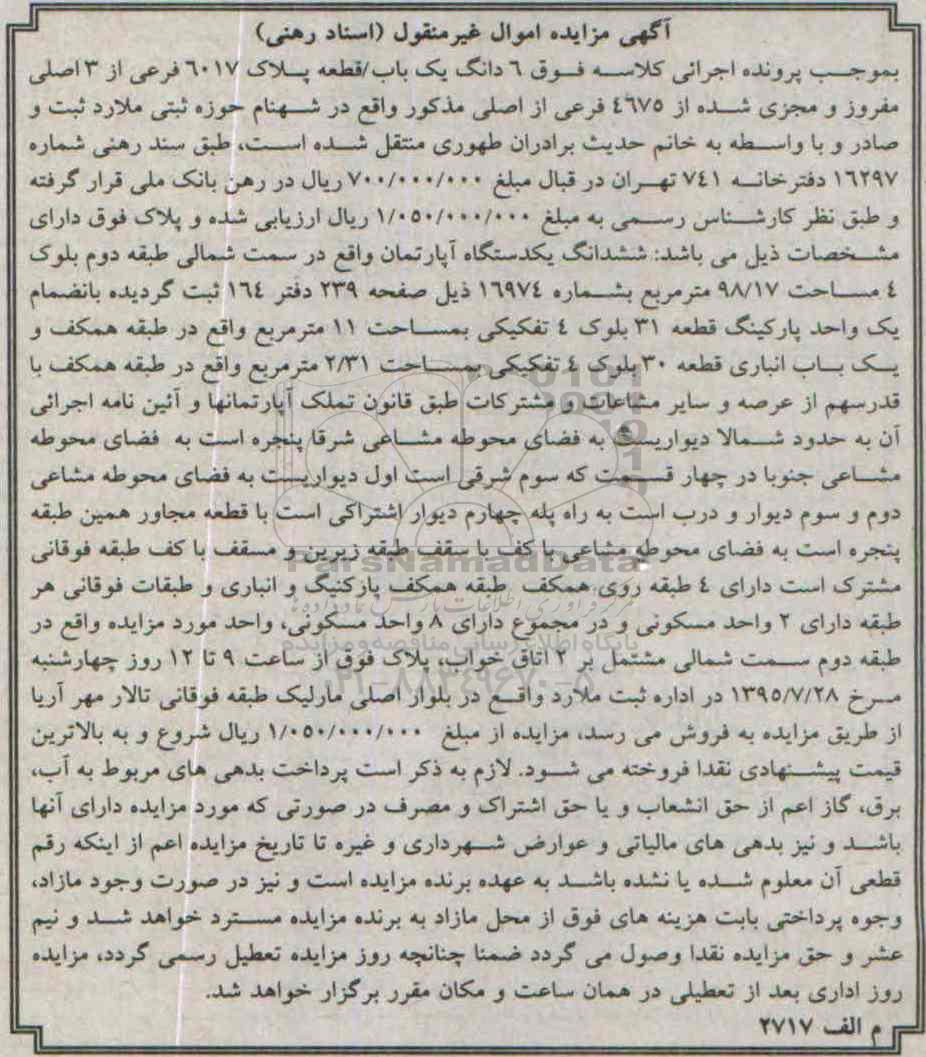 آگهی مزایده اموال غیرمنقول (اسناد رهنی)
بموجب پرونده اجرائی کلاسه فوق ٦ دانگ یک باب/قطعه پلاک ٦٠١٧ فرعی از ٣ اصلی
مفروز و مجزی شده از ٤٦٧٥ فرعی از اصلی مذکور واقع در شهنام حوزه ثبتی ملارد ثبت و
صادر و با واسطه به خانم حدیث برادران طهوری منتقل شده است، طبق سند رهنی شماره
١٦٢٩٧ دفترخانه ٧٤١ تهران در قبال مبلغ ٧٠٠/٠٠٠/٠٠٠ ریال در رهن بانک ملی قرار گرفته
و طبق نظر کارشناس رسمی به مبلغ ١/٠٥٠/٠٠٠/٠٠٠ ریال ارزیابی شده و پلاک فوق دارای
مشخصات ذیل می باشد: ششدانگ یکدستگاه آپارتمان واقع در سمت شمالی طبقه دوم بلوک
٤ مساحت ٩٨/١٧ مترمربع بشماره ١٦٩٧٤ ذیل صفحه ٢٣٩ دفتر ١٦٤ ثبت گردیده بانضمام
یک واحد پارکینگ قطعه ٣١ بلوک ٤ تفکیکی بمساحت ١١ مترمربع واقع در طبقه همکف و
یک باب انباری قطعه ٣٠ بلوک ٤ تفکیکی بمساحت ٢/٣١ مترمربع واقع در طبقه همکف با
قدرسهم از عرصه و سایر مشاعات و مشترکات طبق قانون تملک آپارتمانها و آئین نامه اجرائی
آن به حدود شمالا دیواریست به فضای محوطه مشاعی شرقا پنجره است به فضای محوطه
مشاعی جنوبا در چهار قسمت که سوم شرقی است اول دیواریست به فضای محوطه مشاعی
دوم و سوم دیوار و درب است به راه پله چهارم دیوار اشتراکی است با قطعه مجاور همین طبقه
پنجره است به فضای محوطه مشاعی با کف با سقف طبقه زیرین و مسقف با کف طبقه فوقانی
مشترک است دارای ٤ طبقه روی همکف طبقه همکف پارکنیگ و انباری و طبقات فوقانی هر
طبقه دارای ٢ واحد مسکونی و در مجموع دارای ٨ واحد مسکونی، واحد مورد مزایده واقع در
طبقه دوم سمت شمالی مشتمل بر ٢ اتاق خواب، پلاک فوق از ساعت ٩ تا ١٢ روز چهارشنبه
مرخ ١٣٩٥/٧/٢٨ در اداره ثبت ملارد واقع در بلوار اصلی مارلیک طبقه فوقانی تالار مهر آریا
از طریق مزایده به فروش می رسد، مزایده از مبلغ ١/٠٥٠/٠٠٠/٠٠٠ ریال شروع و به بالاترین
قیمت پیشنهادی نقدا فروخته می شود. لازم به ذکر است پرداخت بدهی های مربوط به آب،
برق، گاز اعم از حق انشعاب و یا حق اشتراک و مصرف در صورتی که مورد مزایده دارای آنها
باشد و نیز بدهی های مالیاتی و عوارض شهرداری و غیره تا تاریخ مزایده اعم از اینکه رقم
قطعی آن معلوم شده یا نشده باشد به عهده برنده مزایده است و نیز در صورت وجود مازاد،
وجوه پرداختی بابت هزینه های فوق از محل مازاد به برنده مزایده مسترد خواهد شد و نیم
عشر و حق مزایده نقدا وصول می گردد ضمنا چنانچه روز مزایده تعطیل رسمی گردد، مزایده
روز اداری بعد از تعطیلی در همان ساعت و مکان مقرر برگزار خواهد شد.
م الف ٢٧١٧
ParsNamadData
پایگاه اطلاع رسانی مناقصه و مزایده
٠٢١-٨٨٣٤٩٦٧٠-٥